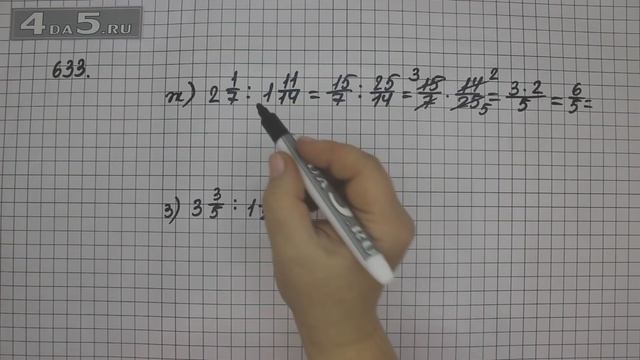 4DA5.RU
633.
ж) 2 1/7 : 1 11/14 = 15/7 : 25/14 = 15/7 · 14/25 = 3·2/5 = 6/5 =
3 2 5
з) 3 3/5 : 1